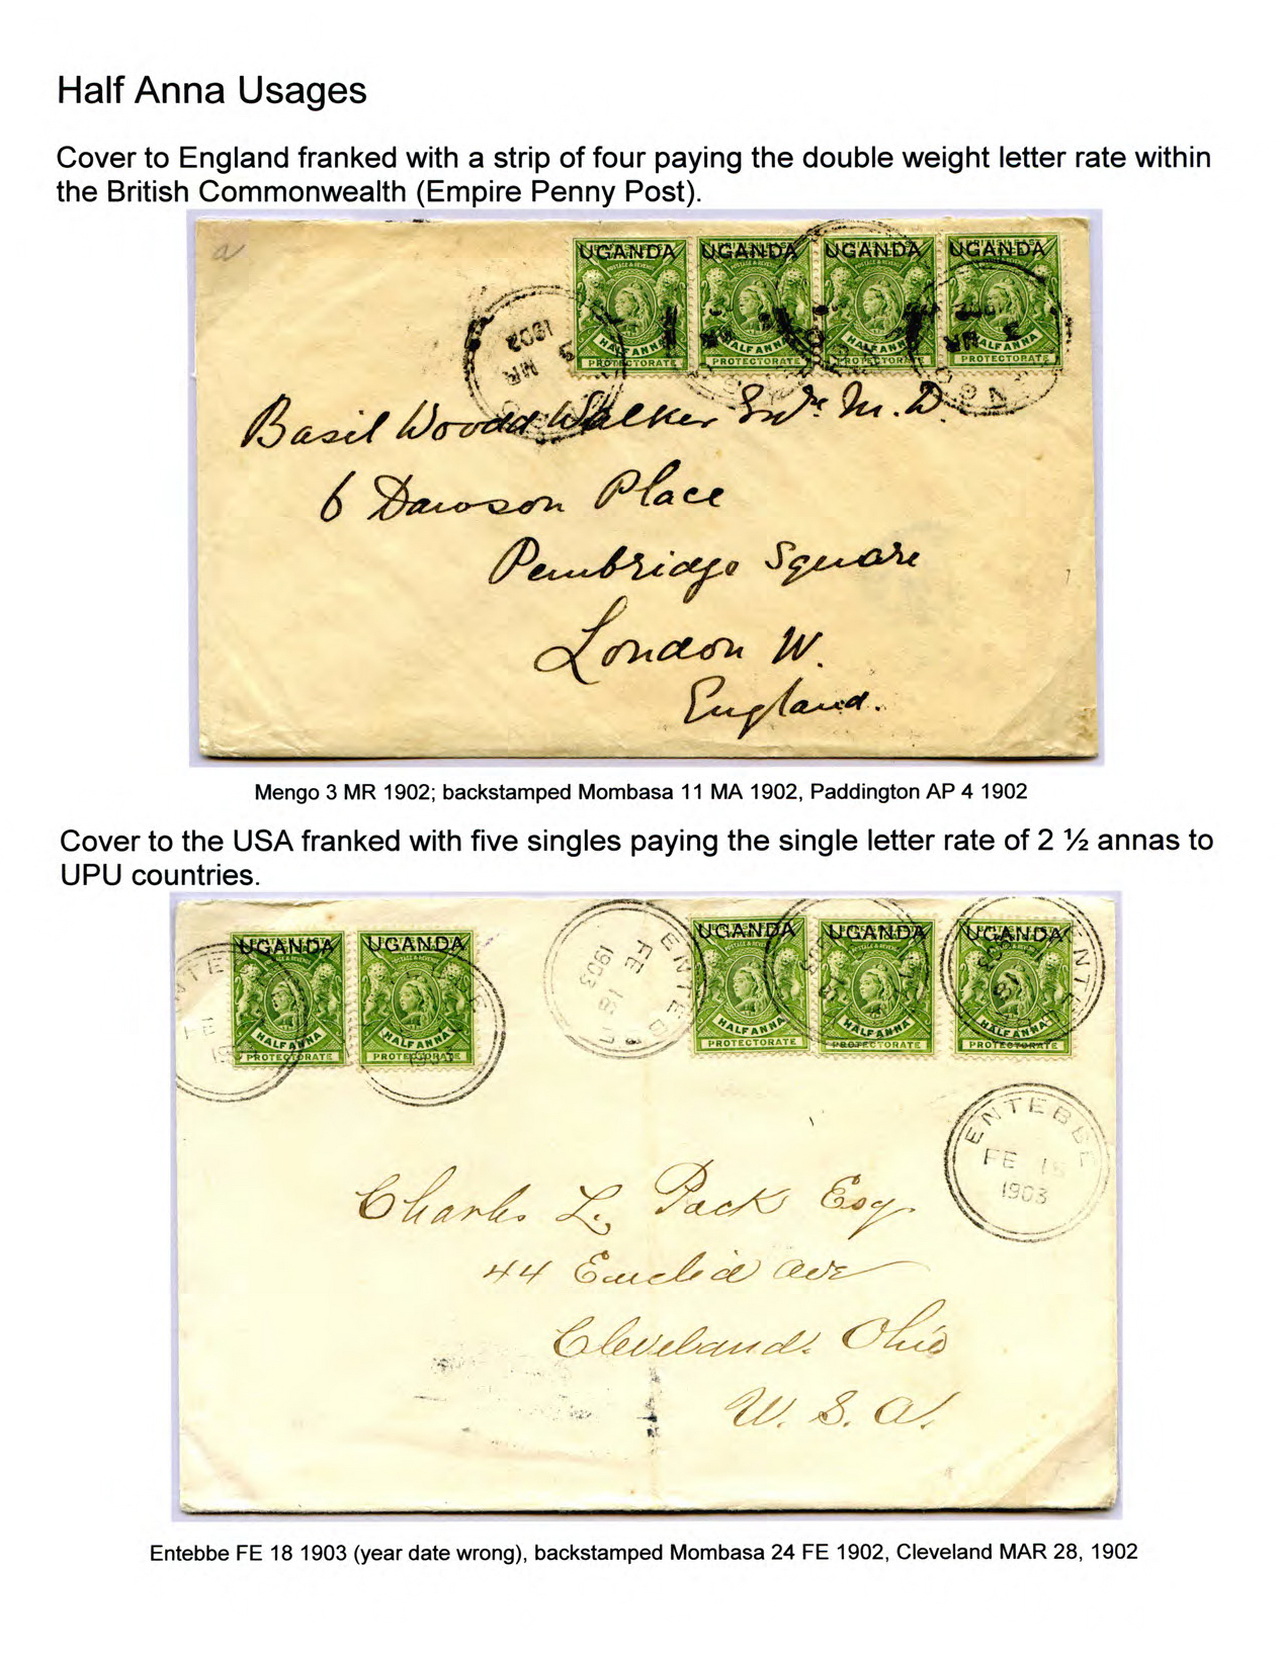 Half Anna Usages
Cover to England franked with a strip of four paying the double weight letter rate within
the British Commonwealth (Empire Penny Post).
a
UGANDA UGANDA UGANDA UGANDA
POSTAGE & REVENUE
HALF ANNA HALF ANNA HALF ANNA HALF ANNA
PROTECTORATE PROTECTORATE PROTECTORATE PROTECTORATE
3 MR 1902
Basil Woodd Walker Esqre M.D.
6 Dawson Place
Pembridge Square
London W.
England.
Mengo 3 MR 1902; backstamped Mombasa 11 MA 1902, Paddington AP 4 1902
Cover to the USA franked with five singles paying the single letter rate of 2 ½ annas to
UPU countries.
UGANDA UGANDA UGANDA UGANDA UGANDA
HALF ANNA HALF ANNA HALF ANNA HALF ANNA HALF ANNA
PROTECTORATE PROTECTORATE PROTECTORATE PROTECTORATE PROTECTORATE
ENTEBBE
FE 18
1903
ENTEBBE
FE 18
1903
Charles L. Pack Esq.
44 Euclid Ave
Cleveland. Ohio
U. S. A.
Entebbe FE 18 1903 (year date wrong), backstamped Mombasa 24 FE 1902, Cleveland MAR 28, 1902